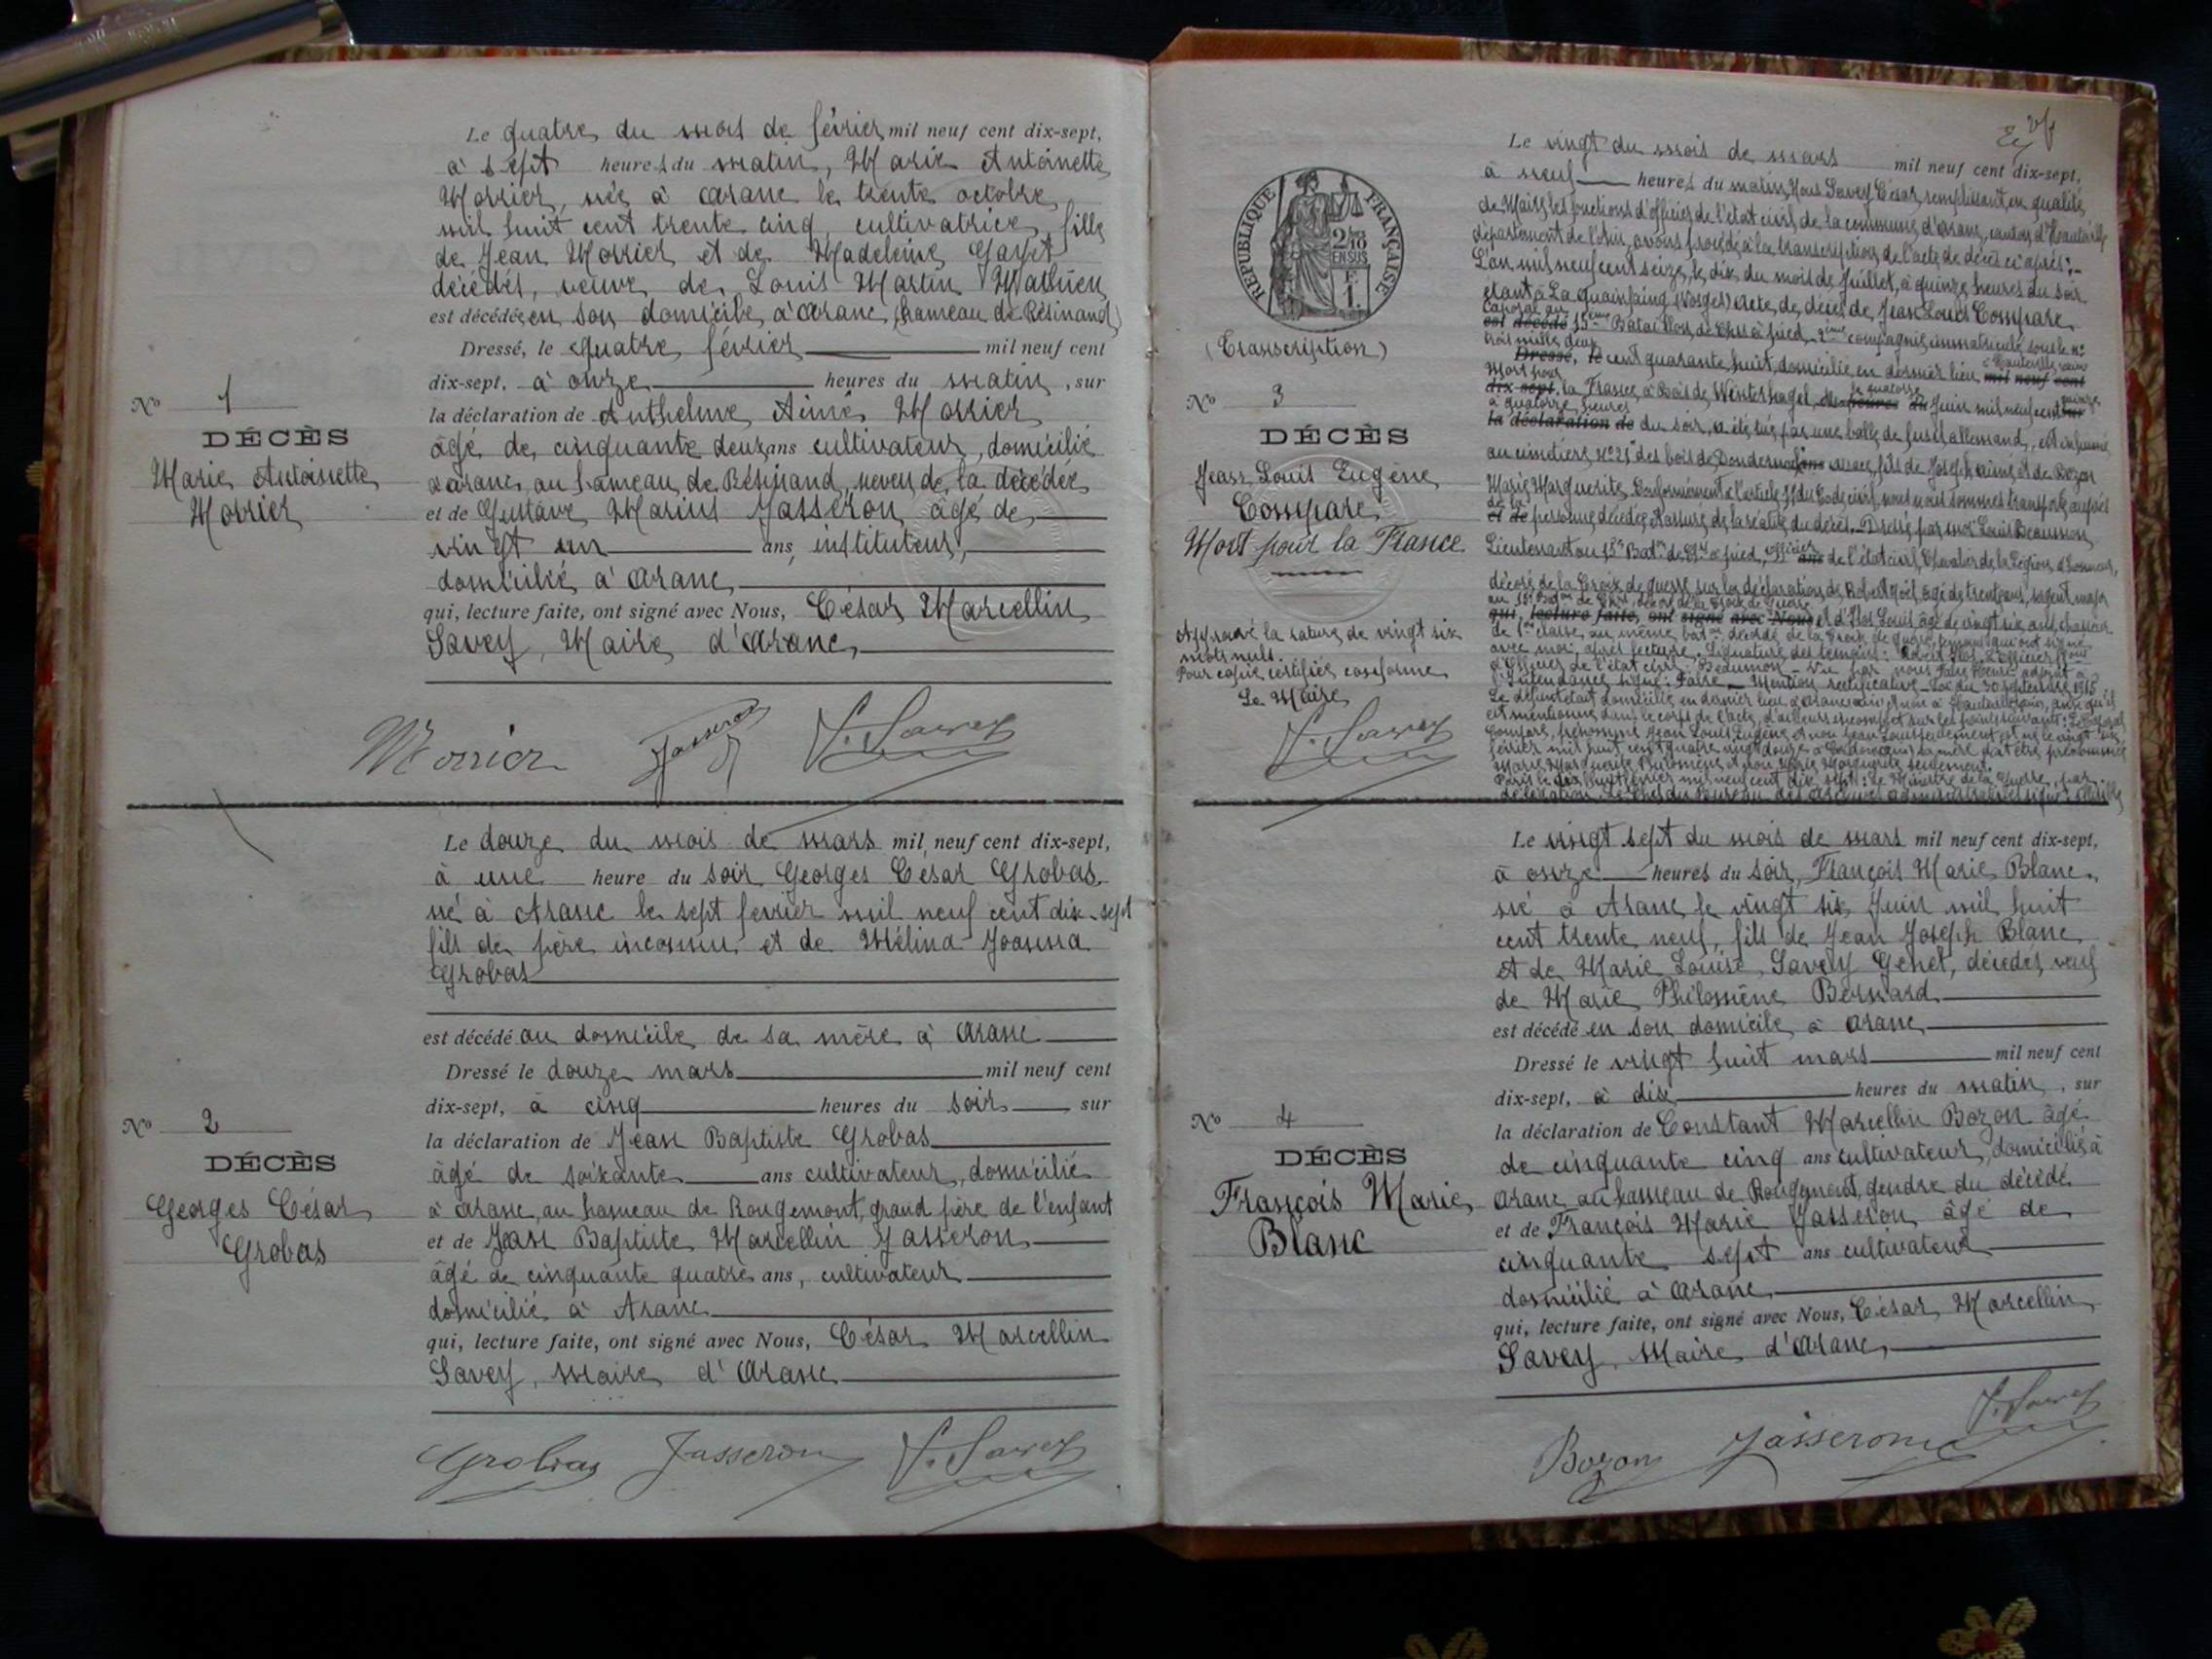 Le quatre du mois de février mil neuf cent dix-sept,
à sept heures du matin, Marie Antoinette
Morrier, née à Aranc le trente octobre
mil huit cent trente cinq, cultivatrice, fille
de Jean Morrier et de Madeleine Gayet
décédés, veuve de Louis Martin Mathieu
est décédée en son domicile à Aranc (hameau de Résinand)
Dressé, le quatre février mil neuf cent
dix-sept, à onze heures du matin, sur
la déclaration de Anthelme Aimé Morrier
âgé de cinquante deux ans cultivateur, domicilié
à Aranc, au hameau de Résinand, neveu de la décédée
et de Gustave Marius Jasseron âgé de
vingt un ans, instituteur,
domicilié à Aranc
qui, lecture faite, ont signé avec Nous, César Marcellin
Savey, Maire d'Aranc,
No 1
DÉCÈS
Marie Antoinette
Morrier
Morrier Jasseron C. Savey
Le douze du mois de mars mil neuf cent dix-sept,
à une heure du soir, Georges César Grobas
né à Aranc le sept février mil neuf cent dix-sept
fils de père inconnu et de Mélina Joanna
Grobas
est décédé au domicile de sa mère à Aranc
Dressé le douze mars mil neuf cent
dix-sept, à cinq heures du soir, sur
la déclaration de Jean Baptiste Grobas
âgé de soixante ans cultivateur, domicilié
à Aranc, au hameau de Rougemont, grand père de l'enfant
et de Jean Baptiste Marcellin Jasseron
âgé de cinquante quatre ans, cultivateur
domicilié à Aranc
qui, lecture faite, ont signé avec Nous, César Marcellin
Savey, Maire d'Aranc
No 2
DÉCÈS
Georges César
Grobas
Grobas Jasseron C. Savey
RÉPUBLIQUE FRANÇAISE
2/10
EN SUS
F.
1.
(Transcription)
No 3
DÉCÈS
Jean Louis Eugène
Compare
Mort pour la France
Approuvé la rature de vingt six
mots nuls.
Pour copie certifiée conforme
Le Maire
C. Savey
Le vingt du mois de mars mil neuf cent dix-sept,
à neuf heures du matin, Nous Savey César, remplissant en qualité
de Maire les fonctions d'officier de l'état civil de la commune d'Aranc, canton d'Hauteville
département de l'Ain, avons procédé à la transcription de l'acte de décès ci après:
L'an mil neuf cent seize, le dix du mois de Juillet, à quinze heures du soir
étant à La Quainfaing (Vosges) Acte de décès de Jean Louis Compare
caporal au
est décédé 15ème Bataillon de Chrs à pied, 2ème compagnie immatriculé sous le n°
trois mille deux
Dressé, le cent quarante huit, domicilié en dernier lieu à Hauteville mil neuf cent
Mort pour
dix-sept, la France à Bois de heures du le quatorze Juin mil neuf cent seize sur
à quatorze heures
la déclaration de du soir, a été tué par une balle de fusil allemand, est inhumé
au cimetière N° 25 des bois de Alsace, fils de Joseph aimé et de Bozon
Marie Marguerite. Conformément à l'article 77 du Code civil, nous nous sommes transporté auprès
de la
et de personne décédée et assuré de la réalité du décès. Dressé par moi Louis
Lieutenant au 15e Baton de Chrs à pied, officier ans de l'état civil, Chevalier de la Légion d'honneur,
décoré de la Croix de guerre, sur la déclaration de Robert Noël âgé de trente ans, sergent major
au 15e Baton de Chrs, décoré de la Croix de Guerre
qui, lecture faite, ont signé avec Nous et d' Louis âgé de vingt six ans, chasseur
de 1ère classe au même baton décoré de la Croix de guerre, témoins qui ont signé
avec moi après lecture. Signature des témoins: Robert
d'Officier de l'état civil: Vu par nous Henri adjoint à
l'Intendance signé: Mention rectificative Loi du 30 septembre 1915
Le défunt était domicilié en dernier lieu à Aranc et non à Hauteville ainsi qu'il
est mentionné dans le corps de l'acte, d'ailleurs incomplet sur les points suivants: Le Caporal
Compare, prénommé Jean Louis Eugène et non Jean Louis seulement est né le vingt six
février mil huit cent quatre vingt douze à sa mère doit être prénommée
Marie Marguerite Philomène et non Marie Marguerite seulement.
Paris le dix huit février mil neuf cent dix sept: Le Ministre de la Guerre, par
délégation, Le Chef du Bureau des Archives administratives signé:
Le vingt sept du mois de mars mil neuf cent dix-sept,
à onze heures du soir, François Marie Blanc
né à Aranc le vingt six Juin mil huit
cent trente neuf, fils de Jean Joseph Blanc
et de Marie Louise Savey Genet, décédés, veuf
de Marie Philomène Bernard
est décédé en son domicile à Aranc
Dressé le vingt huit mars mil neuf cent
dix-sept, à dix heures du matin, sur
la déclaration de Constant Marcellin Bozon âgé
de cinquante cinq ans cultivateur, domicilié à
Aranc au hameau de Rougemont, gendre du décédé
et de François Marie Jasseron âgé de
cinquante sept ans cultivateur
domicilié à Aranc
qui, lecture faite, ont signé avec Nous, César Marcellin
Savey, Maire d'Aranc,
No 4
DÉCÈS
François Marie
Blanc
Bozon Jasseron C. Savey